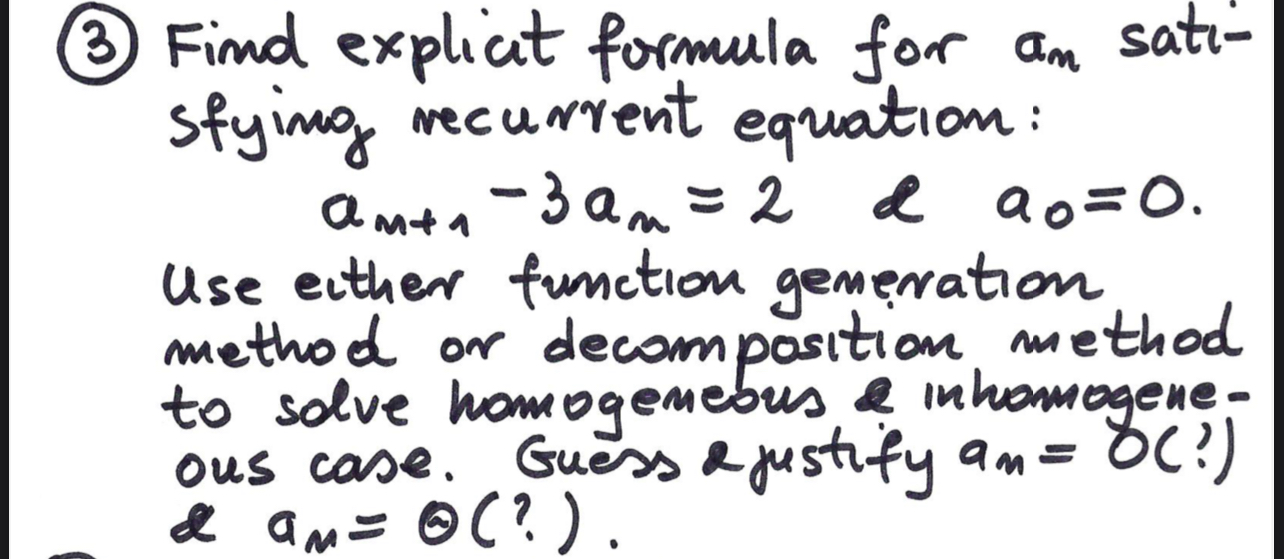 ③ Find explicit formula for aₙ sati-
sfying recurrent equation:
aₙ₊₁ - 3aₙ = 2 & a₀ = 0.
Use either function generation
method or decomposition method
to solve homogeneous & inhomogene-
ous case. Guess & justify aₙ = O(?)
& aₙ = Θ(?).